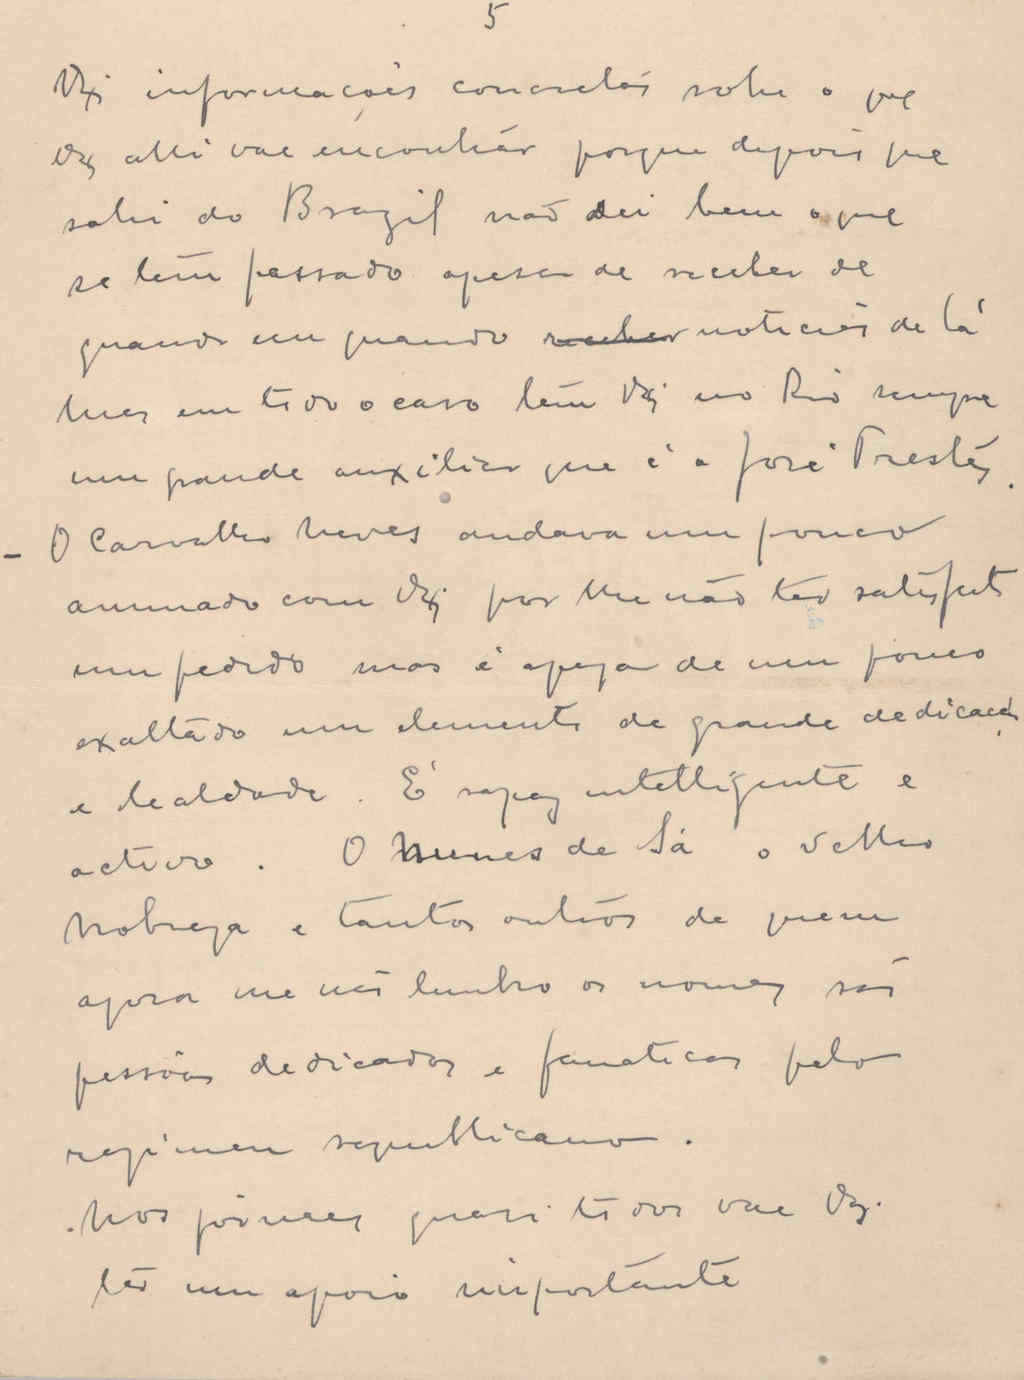 5
Vª informações concretas sobre o que
Vª alli vae encontrár porque depois que
sahi do Brazil não sei bem o que
se tem passado apesar de receber de
quando em quando receber noticias de lá
mas em todo o caso tem Vª no Rio sempre
um grande auxiliar que é o José Prestes.
- O Carvalho Neves andava um pouco
amuado com Vª por lhe não ter satisfeito
um pedido mas é apezar de um pouco
exaltádo um elemento de grande dedicação
e lealdade. É rapaz intelligente e
activo. O Nunes de Sá o velho
Nobrega e tantos outros de quem
agora me não lembro os nomes são
pessôas dedicados e fanaticos pelo
regimen republicano.
. Nos jornaes quasi todos vae Vª.
ter um apoio importante